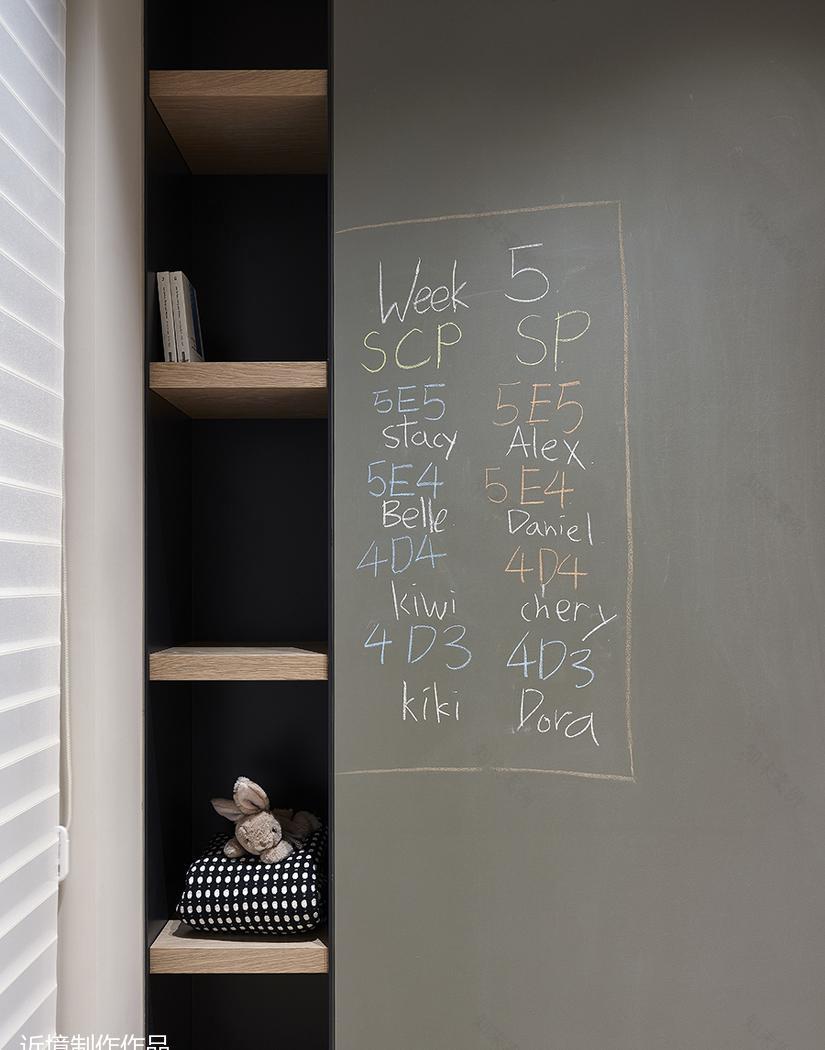 Week 5
SCP SP
5E5 5E5
stacy Alex
5E4 5E4
Belle Daniel
4D4 4D4
kiwi chery
4D3 4D3
kiki Dora
近境制作作品